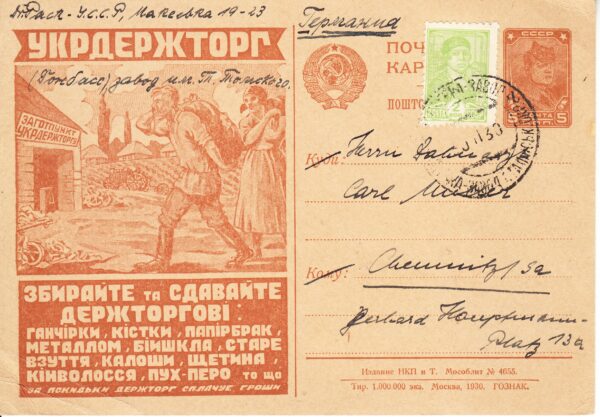 Расп. У.С.С.Р, Макеевка 19-23
Германия
УКРДЕРЖТОРГ
(Донбасс) завод им. Т. Томского.
ЗАГОТПУНКТ
УКРДЕРЖТОРГУ
ЗБИРАЙТЕ ТА СДАВАЙТЕ
ДЕРЖТОРГОВІ:
ГАНЧІРКИ, КІСТКИ, ПАПІРБРАК,
МЕТАЛЛОМ, БІЙШКЛА, СТАРЕ
ВЗУТТЯ, КАЛОШИ, ЩЕТИНА,
КІНВОЛОССЯ, ПУХ-ПЕРО ТО ЩО
ЗА ПОКИДЬКИ ДЕРЖТОРГ СПЛАЧУЄ ГРОШИ
ПОЧ
КАР
ПОШТО
СССР
5 5
Куди
Herrn
Carl Müller
Кому:
Chemnitz/Sa
Gerhard Hauptmann-
Platz 13a
Издание НКП и Т. Мособлит № 4655.
Тир. 1.000.000 экз. Москва, 1930. ГОЗНАК.